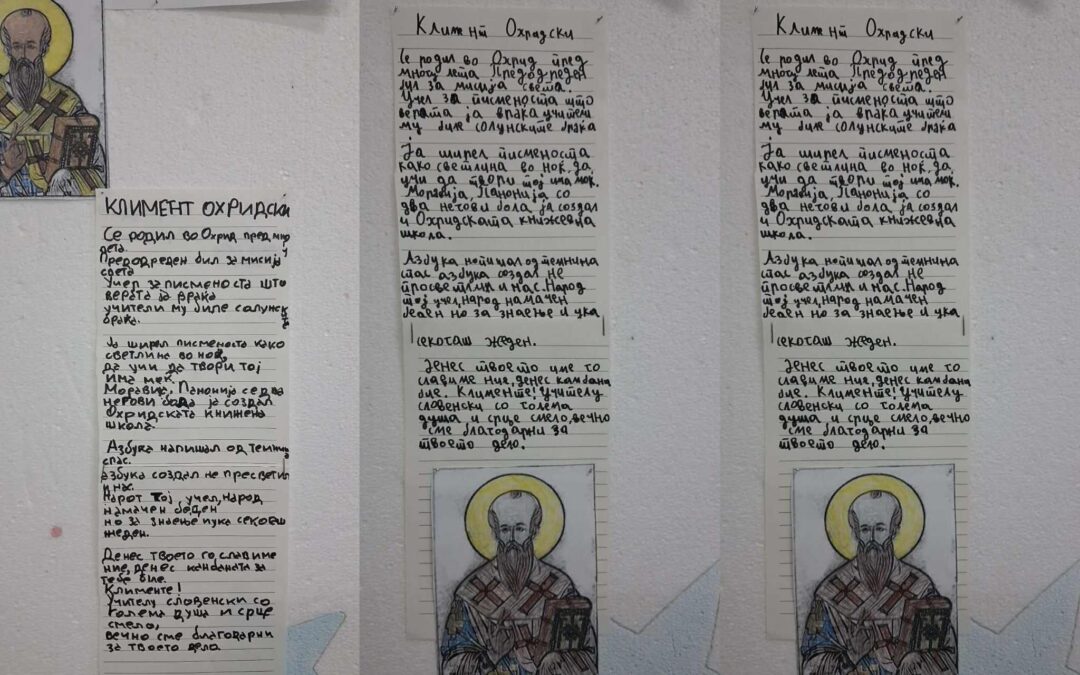 КЛИМЕНТ ОХРИДСКИ
Се родил во Охрид пред мно
лета.
предодреден бил за мисија
света
учел за писменоста што
верата ја враќа
учители му биле солунск
браќа.
Ја ширел писменоста како
светлина во ноќ,
да учи да твори тој
има моќ.
Моравија, Панонија со два
негови бола ја создал
Охридската книжевна
школа.
Азбука напишал од темнин
спас.
азбука создал не просветил
и нас.
Нарот тој учел, народ
намачен беден
но за знаење и ука секогаш
жеден.
Денес твоето го славиме
ние, денес камбаната за
тебе бие.
Клименте!
Учителу словенски со
голема душа и срце
смело,
вечно сме благодарни
за твоето дело.
Климент Охридски
Се родил во Охрид пред
многу лета Предодреден
бил за мисија света.
Учел за писменоста што
верата ја враќа учители
му биле солунските браќа
Ја ширел писменоста
како светлина во ноќ, да
учи да твори тој има моќ.
Моравија, Панонија со
два негови бола, ја создал
и Охридската книжевна
школа.
Азбука напишал од темнина
спас азбука создал не
просветлил и нас. Народ
тој учел, народ намачен
беден но за знаење и ука
секогаш жеден.
Денес твоето име го
славиме ние, денес камбана
бие. Клименте! Учителу
словенски со голема
душа и срце смело, вечно
сме благодарни за
твоето дело.
Климент Охридски
Се родил во Охрид пред
многу лета Предодреден
бил за мисија света.
Учел за писменоста што
верата ја враќа учители
му биле солунските браќа
Ја ширел писменоста
како светлина во ноќ, да
учи да твори тој има моќ.
Моравија, Панонија со
два негови бола, ја создал
и Охридската книжевна
школа.
Азбука напишал од темнина
спас азбука создал не
просветлил и нас. Народ
тој учел, народ намачен
беден но за знаење и ука
секогаш жеден.
Денес твоето име го
славиме ние, денес камбана
бие. Клименте! Учителу
словенски со голема
душа и срце смело, вечно
сме благодарни за
твоето дело.